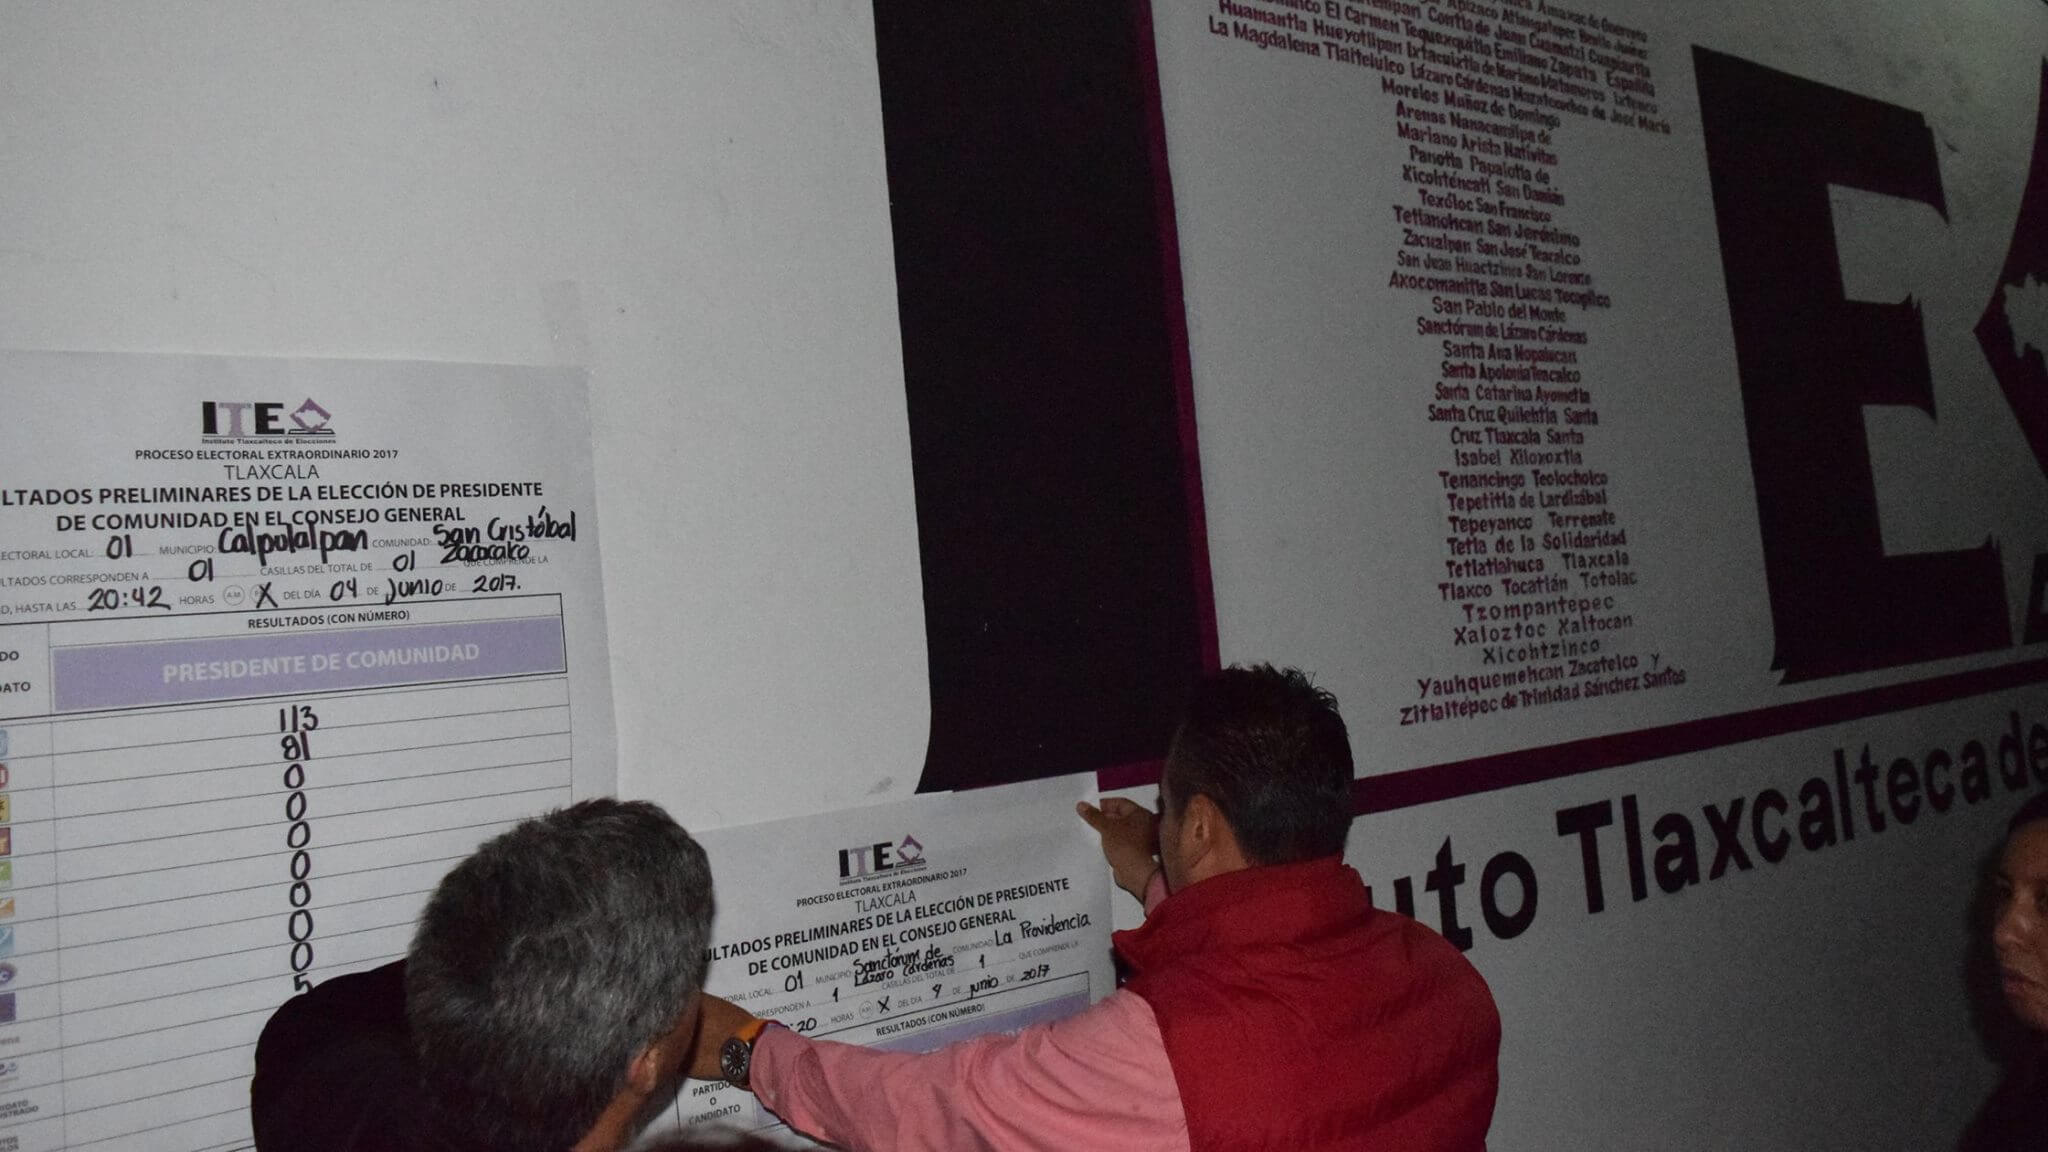 ITE
Instituto Tlaxcalteca de Elecciones
PROCESO ELECTORAL EXTRAORDINARIO 2017
TLAXCALA
LTADOS PRELIMINARES DE LA ELECCIÓN DE PRESIDENTE
DE COMUNIDAD EN EL CONSEJO GENERAL
ECTORAL LOCAL: 01 MUNICIPIO: Calpulalpan COMUNIDAD: San Cristóbal Zacacalco
LTADOS CORRESPONDEN A 01 CASILLAS DEL TOTAL DE 01 QUE COMPRENDE LA
D, HASTA LAS 20:42 HORAS A.M. X DEL DÍA 04 DE Junio DE 2017.
RESULTADOS (CON NÚMERO)
DO
ATO
PRESIDENTE DE COMUNIDAD
113
81
0
0
0
0
0
0
0
5
ITE
Instituto Tlaxcalteca de Elecciones
PROCESO ELECTORAL EXTRAORDINARIO 2017
TLAXCALA
ULTADOS PRELIMINARES DE LA ELECCIÓN DE PRESIDENTE
DE COMUNIDAD EN EL CONSEJO GENERAL
TORAL LOCAL: 01 MUNICIPIO: Sanctórum de Lázaro Cárdenas COMUNIDAD: La Providencia
ORRESPONDEN A 1 CASILLAS DEL TOTAL DE 1 QUE COMPRENDE LA
:20 HORAS A.M. X DEL DÍA 4 DE junio DE 2017
RESULTADOS (CON NÚMERO)
PARTIDO
O
CANDIDATO
Amaxac de Guerrero
Apizaco Atlangatepec Benito Juárez
Contla de Juan Cuamatzi Cuapiaxtla
El Carmen Tequexquitla Emiliano Zapata Españita
Huamantla Hueyotlipan Ixtacuixtla de Mariano Matamoros Ixtenco
La Magdalena Tlaltelulco Lázaro Cárdenas Mazatecochco de José María
Morelos Muñoz de Domingo
Arenas Nanacamilpa de
Mariano Arista Nativitas
Panotla Papalotla de
Xicohténcatl San Damián
Texóloc San Francisco
Tetlanohcan San Jerónimo
Zacualpan San José Teacalco
San Juan Huactzinco San Lorenzo
Axocomanitla San Lucas Tecopilco
San Pablo del Monte
Sanctórum de Lázaro Cárdenas
Santa Ana Nopalucan
Santa Apolonia Teacalco
Santa Catarina Ayometla
Santa Cruz Quilehtla Santa
Cruz Tlaxcala Santa
Isabel Xiloxoxtla
Tenancingo Teolocholco
Tepetitla de Lardizábal
Tepeyanco Terrenate
Tetla de la Solidaridad
Tetlatlahuca Tlaxcala
Tlaxco Tocatlán Totolac
Tzompantepec
Xaloztoc Xaltocan
Xicohtzinco
Yauhquemehcan Zacatelco y
Zitlaltépec de Trinidad Sánchez Santos
E
uto Tlaxcalteca de